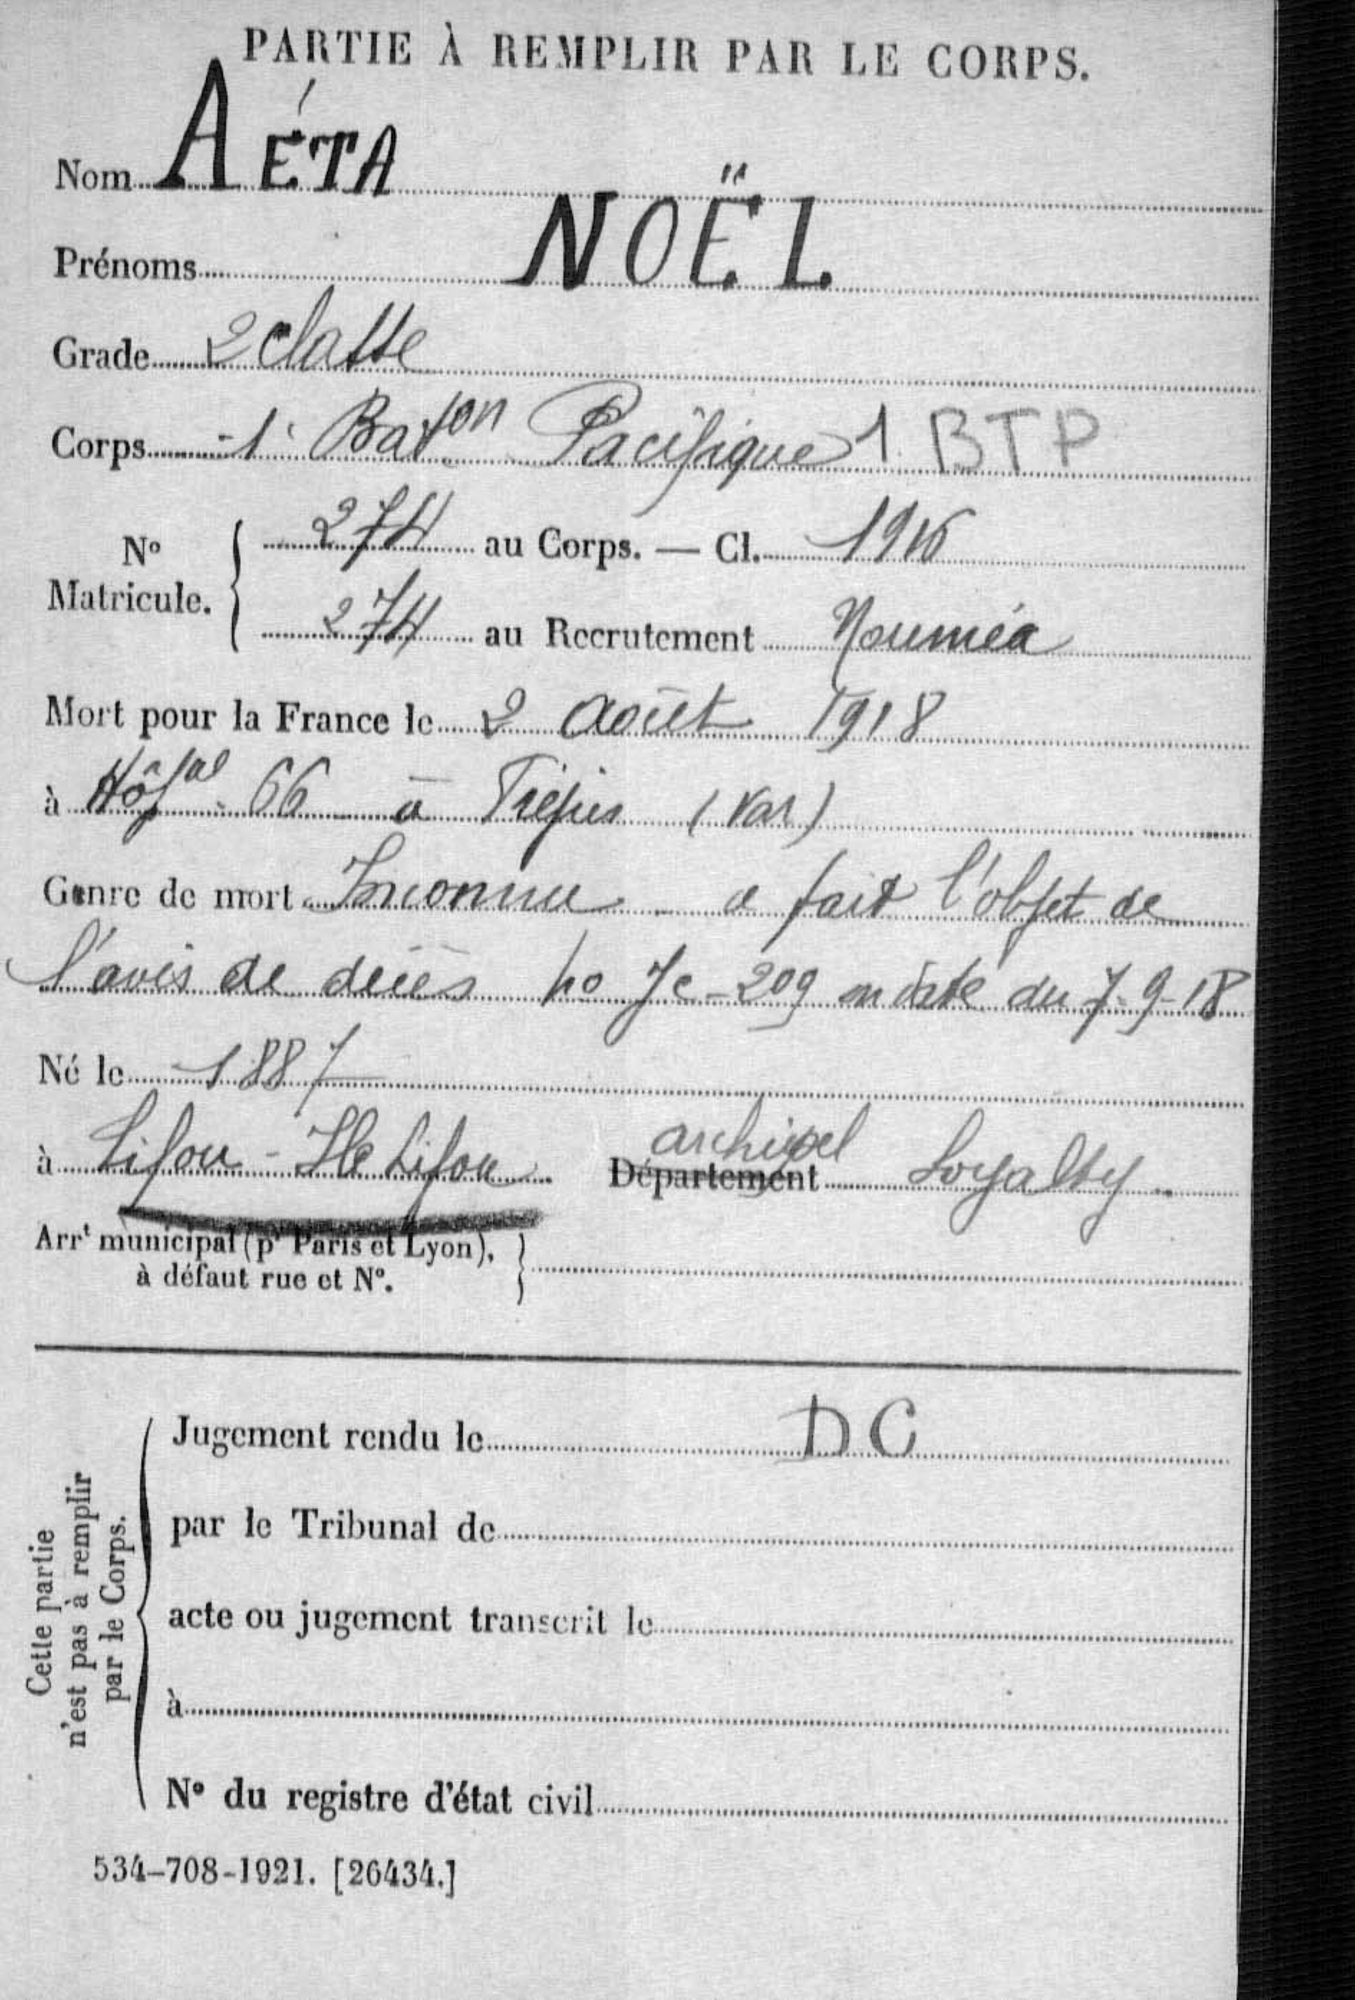 PARTIE À REMPLIR PAR LE CORPS.
Nom AÉTA
Prénoms NOËL
Grade 2 classe
Corps 1 Baton Pacifique 1 BTP
No Maticule. 274 au Corps. — Cl. 1916
274 au Recrutement Nouméa
Mort pour la France le 2 Août 1918
à Hôpal 66 à Fréjus (Var)
Genre de mort Inconnu a fait l'objet de
l'avis de décès no Je-209 en date du 7-9-18
Né le 1887
à Lifou - Ile Lifou Département archipel Loyalty
Arrt municipal (pr Paris et Lyon),
à défaut rue et No.
Cette partie
n'est pas à remplir
par le Corps.
Jugement rendu le DC
par le Tribunal de
acte ou jugement transcrit le
à
No du registre d'état civil
534-708-1921. [26434.]